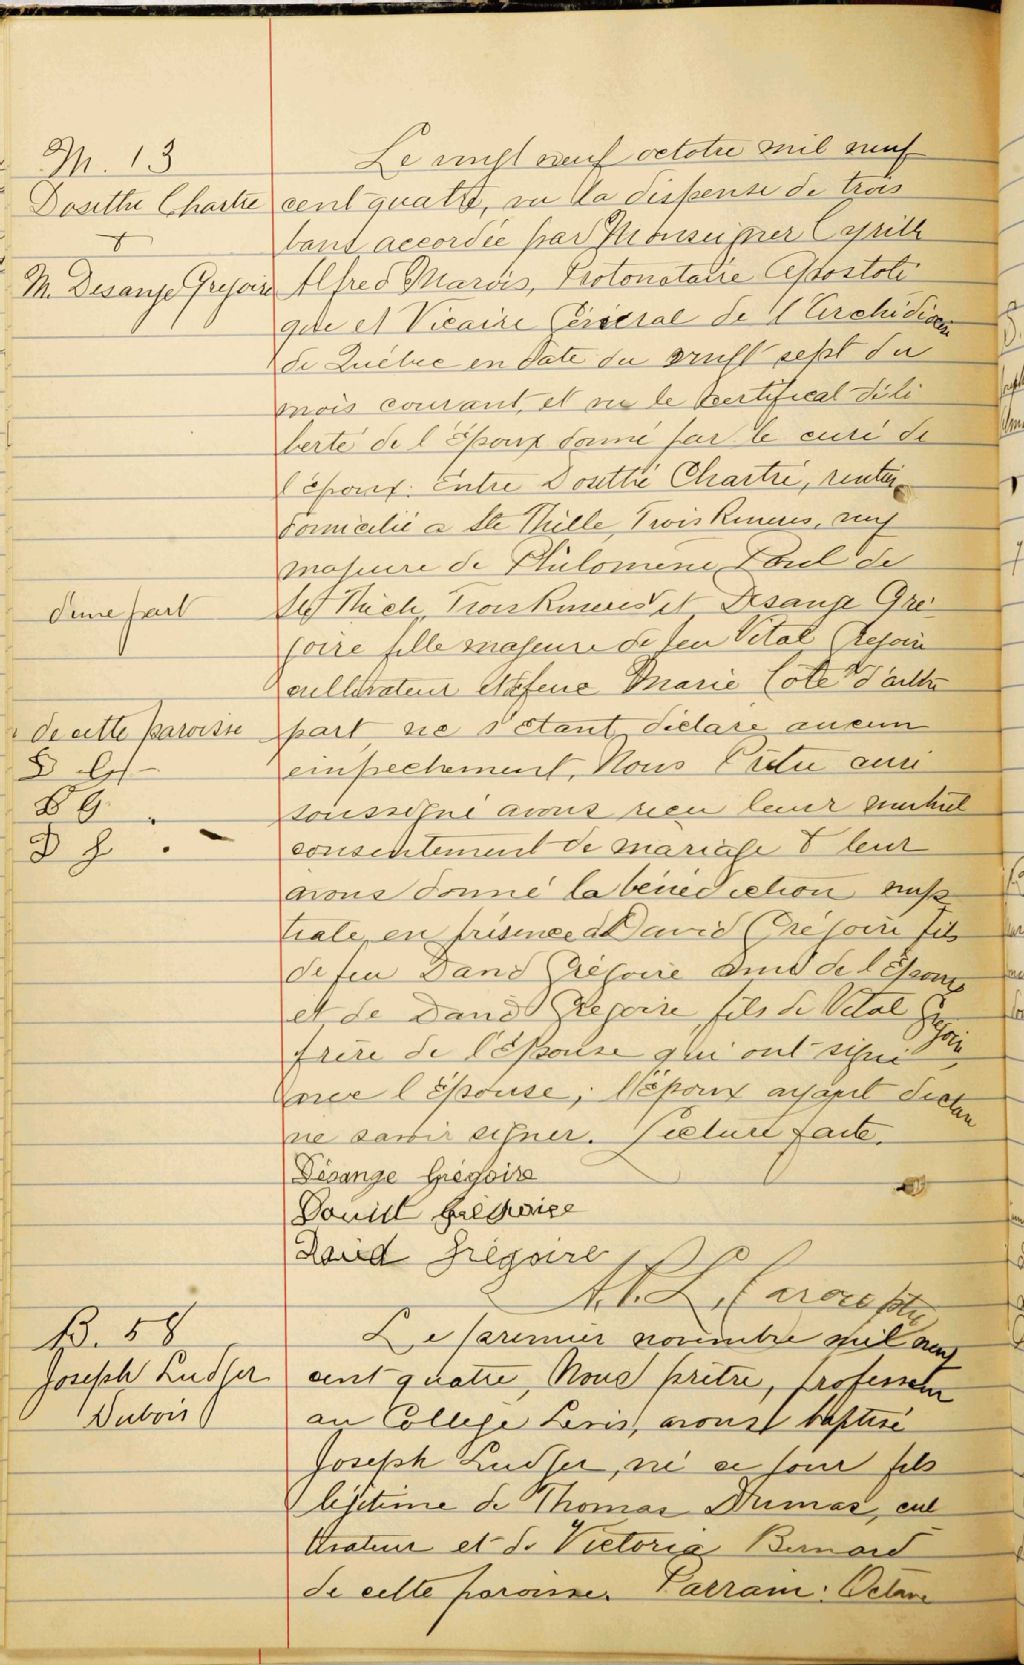 M. 13
Dosethé Chartré
&
M. Desange Grégoire
Le vingt neuf octobre mil neuf
cent quatre, vu la dispense de trois
bans accordée par Monseigneur Cyrille
Alfred Marois, Protonotaire Apostoli
que et Vicaire Général de l'Archidiocèse
de Québec en date du vingt sept du
mois courant, et vu le certificat de li
berté de l'Époux donné par le curé de
l'époux. Entre Dosethé Chartré, rentier
domicilié a Ste Thècle, Trois Rivières, 
majeure de Philomène Paul de
Ste Thècle, Trois Rivières et Desange Gré
d'une part
goire fille majeure de feu Vital Grégoire
cultivateur et de feue Marie Coté d'autre
part, ne s'étant déclaré aucun
de cette paroisse
D G
D G.
D G.
empechement, Nous Prêtre curé
soussigné avons reçu leur mutuel
consentement de mariage & leur
avons donné la bénédiction nup
tiale en présence de David Grégoire fils
de feu David Grégoire ami de l'Épouse
et de David Grégoire fils de Vital Grégoire,
frère de l'Épouse qui ont signé
avec l'Épouse; l'Époux ayant déclaré
ne savoir signer. Lecture faite.
Désange Grégoire
David Grégoire
David Grégoire
ptre
B. 58
Joseph Ludger
Dubois
Le premier novembre mil neuf
cent quatre, Nous prêtre, professeur
au College Levis, avons baptisé
Joseph Ludger, né ce jour fils
légitime de Thomas Dumas, cul
tivateur et de Victoria Bernard
de cette paroisse. Parrain: Octave